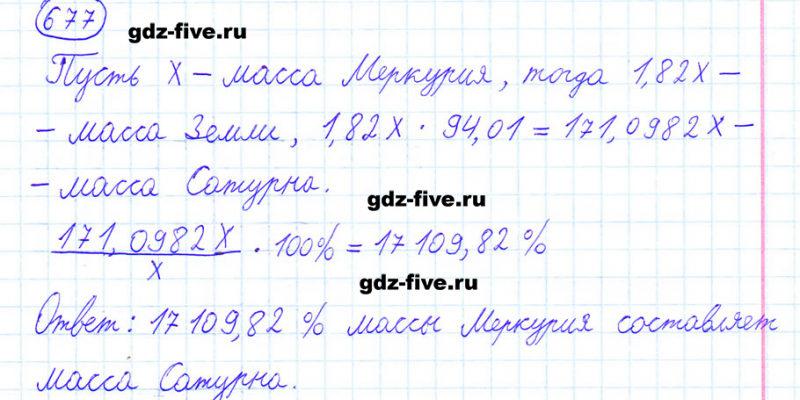 677
gdz-five.ru
Пусть х – масса Меркурия, тогда 1,82х –
– масса Земли, 1,82х · 94,01 = 171,0982х –
– масса Сатурна.
gdz-five.ru
171,0982х / х · 100% = 17 109,82 %
gdz-five.ru
Ответ: 17 109,82 % массы Меркурия составляет
масса Сатурна.